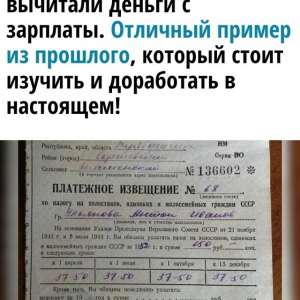 вычитали деньги с
зарплаты. Отличный пример
из прошлого, который стоит
изучить и доработать в
настоящем!
Республика, край, область
Район (город)
Сельсовет
№ 136602 *
ПЛАТЕЖНОЕ ИЗВЕЩЕНИЕ № 68
по налогу на холостяков, одиноких и малосемейных граждан СССР
На основании Указов Президиума Верховного Совета СССР от 21 ноября
1941 г. и 8 июля 1944 г. Вы обязаны уплатить налог на холостяков, одиноких
и малосемейных граждан СССР за 195 г. в сумме 150 руб.
к 1 апреля к 1 июля к 1 октября к 15 декабря
37-50 37-50 37-50 37-50
Кроме того, Вы обязаны немедленно уплатить